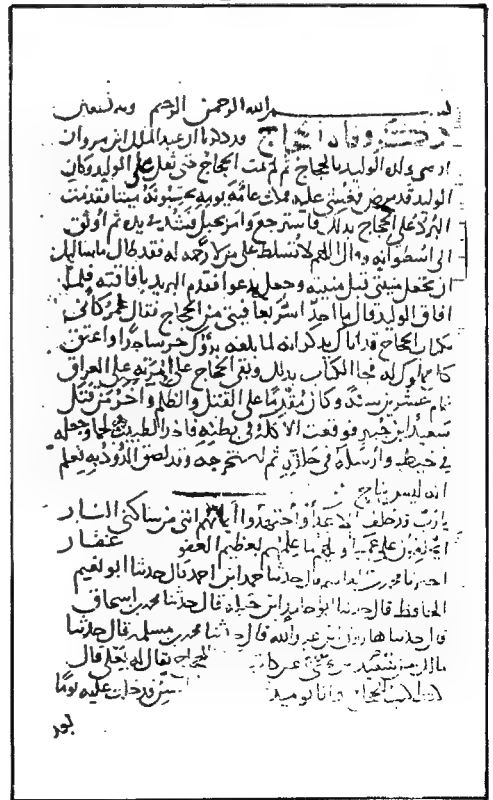 بسم الله الرحمن الرحيم وبه نستعين
ذكر وفاة الحجاج وروينا ان عبد الملك ابن مروان
اوصى ولده الوليد بالحجاج ثم لم يمت الحجاج حتى ثقل على الوليد وكان
الوليد قد مرض فغشي عليه فمكث عامة يومه يحسبونه ميتا فقدمت
البرد على الحجاج بذلك فاسترجع وامر بحبل فشد في يده ثم اوثق
الى اسطوانة وقال اللهم لا تسلط علي من لا رحمة له فقد طال ما سالتك
ان تجعل منيتي قبل منيته وجعل يدعو فقدم البريد بافاقته فلما
افاق الوليد قال ما احد اسر بعافيتي من الحجاج فقال عمر كاني
بكتاب الحجاج قد اتاك يذكر انه لما بلغه برؤك خر ساجدا واعتق
كل مملوك له فجا الكتاب بذلك وبقي الحجاج على امرته على العراق
تمام عشرين سنة وكان مقدما على القتل والظلم واخر من قتل
سعيد ابن جبير فوقعت الاكلة في بطنه فاخذ الطبيب لحما وجعله
في خيط وارسله في حلقه ثم استخرجه وقد لصق الدود به فعلم
انه ليس بناج
يا رب قد حلف الاعدا واجتهدوا ايمانهم انني من ساكني النار
ايحلفون على عميا ويحهم ما علمهم بعظيم العفو غفار
اخبرنا محمد قال حدثنا حمد ابن احمد قال حدثنا ابو نعيم
الحافظ قال حدثنا ابو حامد ابن جبلة قال حدثنا محمد بن اسحاق
قال حدثنا هارون بن عبد الله قال حدثنا محمد بن مسلمة قال حدثنا
مالك بن سعيد الحجاج يقال له يعلى قال
الحجاج وانا يوميذ سنين قد خلت عليه يوما
بعد